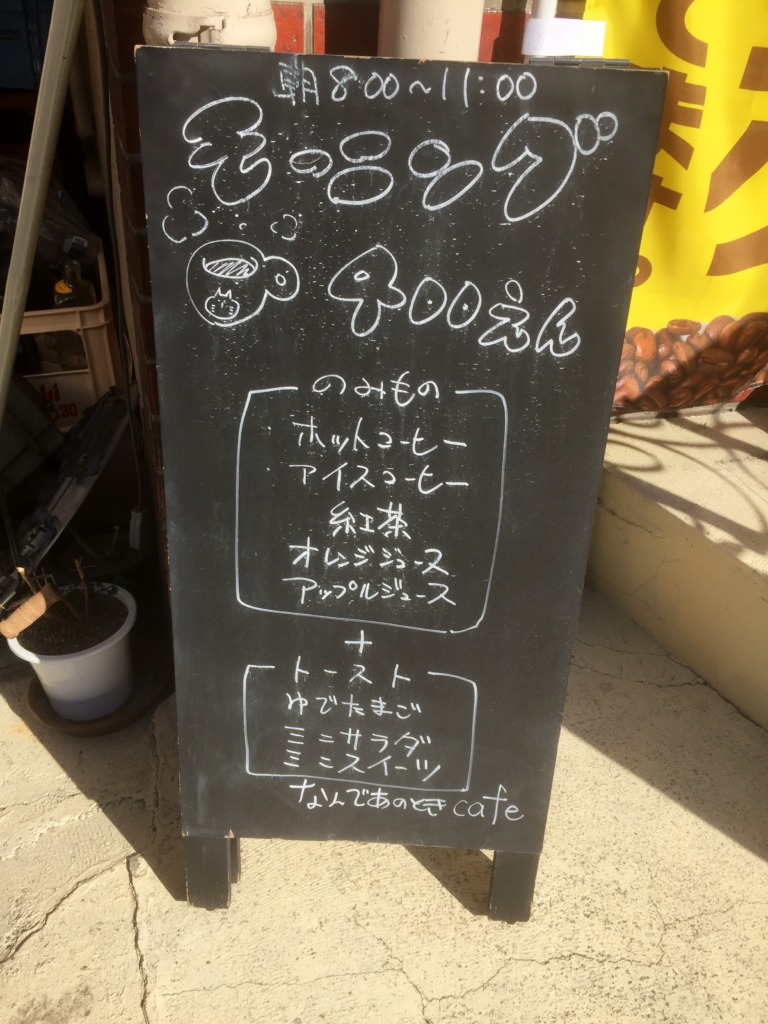 朝8:00~11:00
モーニング
400えん
のみもの
ホットコーヒー
アイスコーヒー
紅茶
オレンジジュース
アップルジュース
+
トースト
ゆでたまご
ミニサラダ
ミニスイーツ
なんであのとき cafe